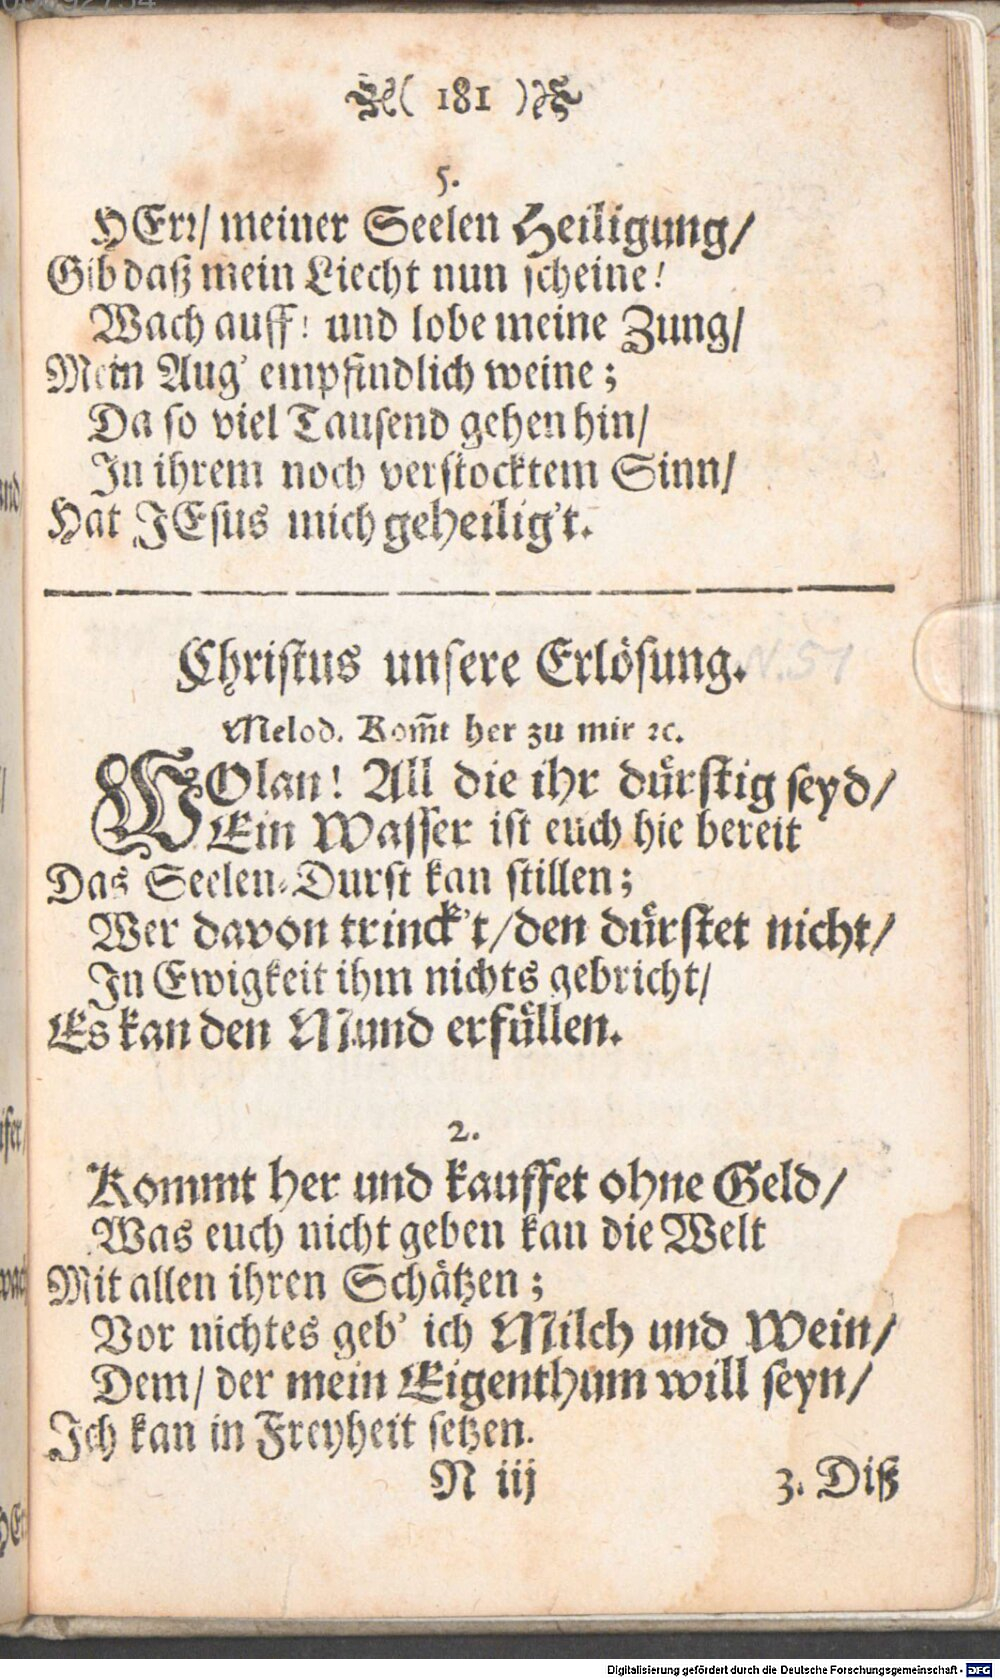 ( 181 )
5.
HErr/ meiner Seelen Heiligung/
Gib daß mein Liecht nun scheine!
Wach auff! und lobe meine Zung/
Mein Aug' empfindlich weine;
Da so viel Tausend gehen hin/
In ihrem noch verstocktem Sinn/
Hat JEsus mich geheilig't.
Christus unsere Erlösung.
N. 51
Melod. Kom̃t her zu mir ꝛc.
WOlan! All die ihr dürstig seyd/
Ein Wasser ist euch hie bereit
Das Seelen-Durst kan stillen;
Wer davon trinck't/ den dürstet nicht/
In Ewigkeit ihm nichts gebricht/
Es kan den Mund erfüllen.
2.
Kommt her und kauffet ohne Geld/
Was euch nicht geben kan die Welt
Mit allen ihren Schätzen;
Vor nichtes geb' ich Milch und Wein/
Dem/ der mein Eigenthum will seyn/
Ich kan in Freyheit setzen.
N iij
3. Diß
Digitalisierung gefördert durch die Deutsche Forschungsgemeinschaft - DFG